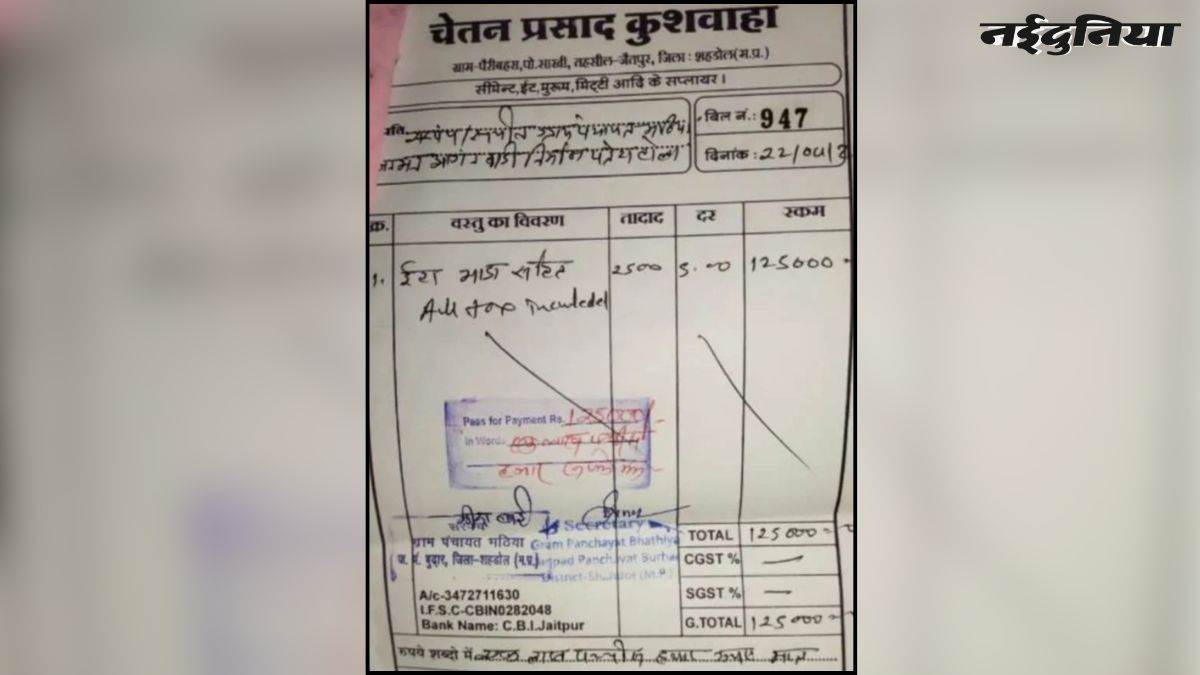 नईदुनिया
चेतन प्रसाद कुशवाहा
ग्राम-पैरीबहरा,पो.साखी, तहसील-जैतपुर, जिला: शहडोल(म.प्र.)
सीमेन्ट,ईट,मुरूम,मिट्टी आदि के सप्लायर।
बिल नं.: 947
दिनांक : 22/04/
क्र. वस्तु का विवरण तादाद दर रकम
1. ईटा भाडा सहित 2500 5.00 125000
All tax included
Pass for Payment Rs. 125000/-
In Words एक लाख पच्चीस
हजार
सरपंच Secretary
ग्राम पंचायत भठिया Gram Panchayat Bhathiya
ज. पं. बुढ़ार, जिला-शहडोल (म.प्र.) Janpad Panchayat Burhar
District-Shahdol (M.P.)
TOTAL 125000
CGST %
SGST %
G.TOTAL 125000
A/c-3472711630
I.F.S.C-CBIN0282048
Bank Name: C.B.I.Jaitpur
रुपये शब्दो में एक लाख पच्चीस हजार रूपए मात्र